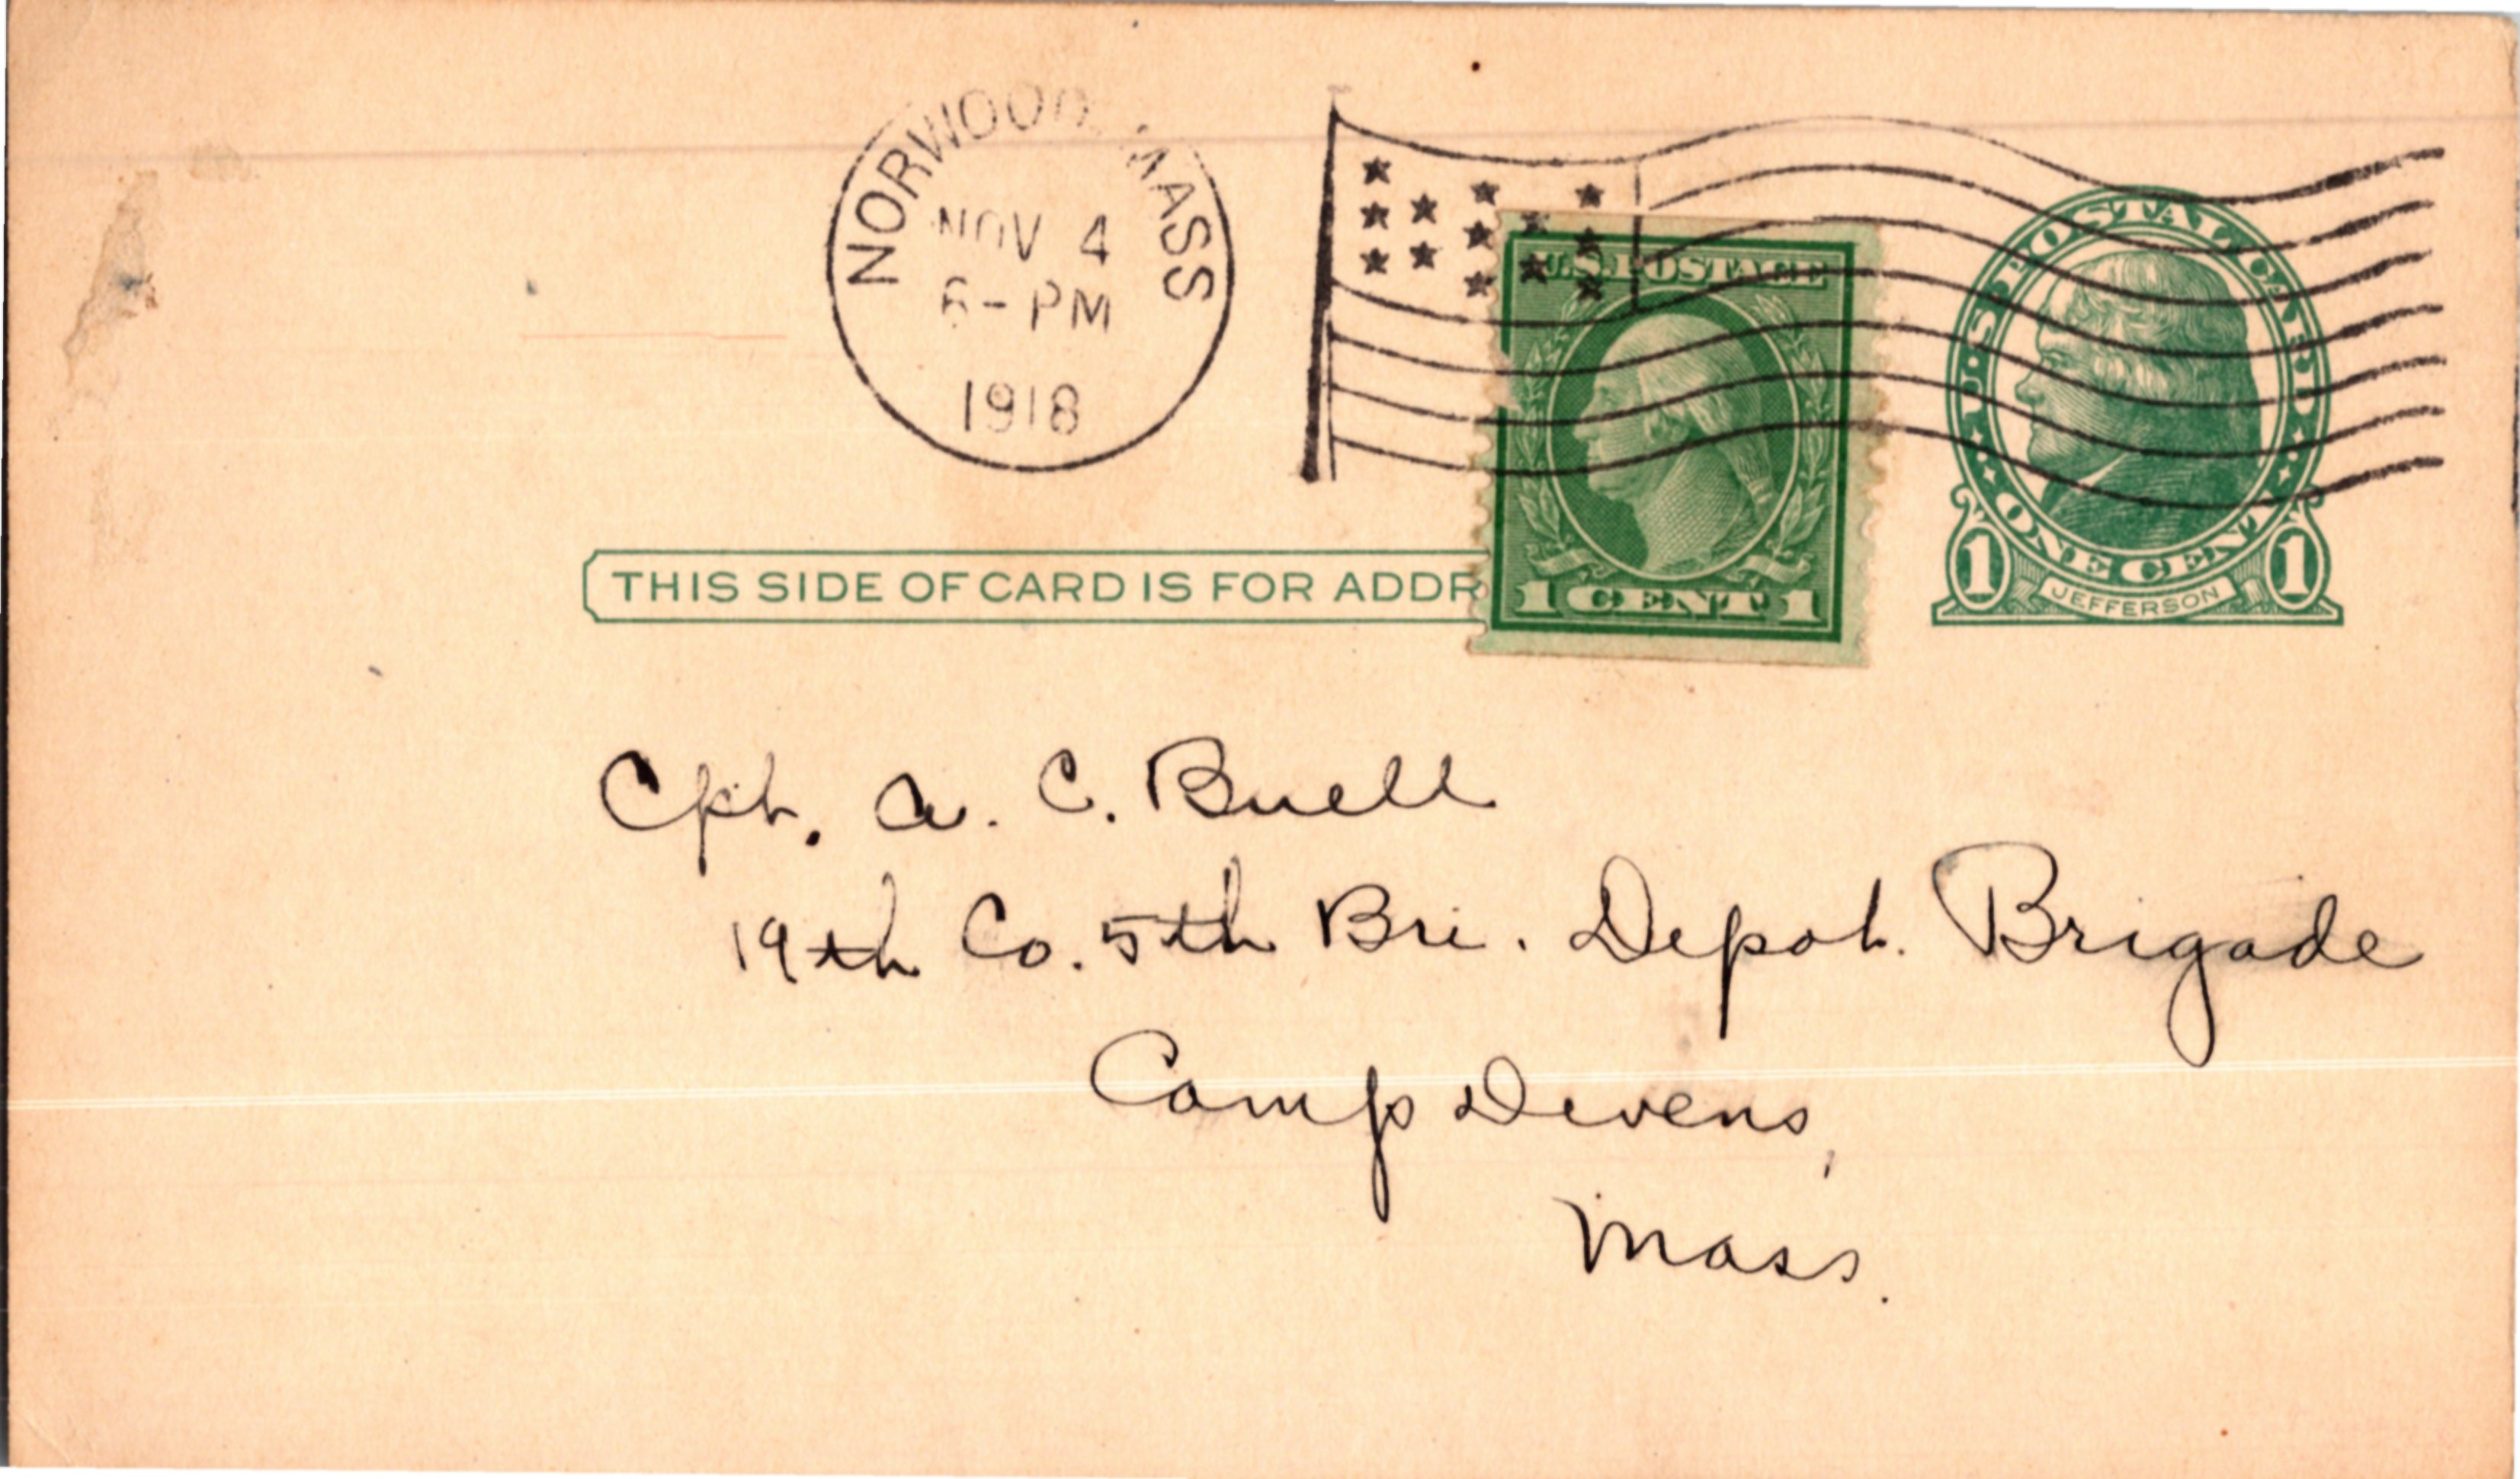 NORWOOD. MASS
NOV 4
6-PM
1918
U.S. POSTAGE
1 CENT 1
U.S. POSTAL CARD
ONE CENT
1 1
JEFFERSON
THIS SIDE OF CARD IS FOR ADDR
Cpt. A. C. Buell
19th Co. 5th Bri. Depot. Brigade
Camp Devens,
Mass.